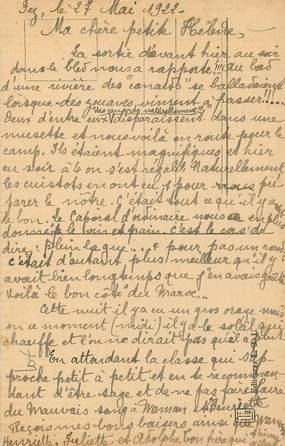 Fez, le 27 Mai 1922
Ma chère petite Hélène,
La sortie d'avant hier au soir
dans le bled nous a rapporté !!! au bord
d'une rivière des canards se balladaient
lorsque des zouaves viennent à passer....
Deux d'entre eux disparaissent dans une
musette et nous voilà en route pour le
camp. Ils étaient magnifiques et hier
au soir à 4 on s'est régalé. Naturellement
les cuistots en ont eu 1 pour nous pré-
parer le notre. C'était tout ce qu'il y a
de bon. Le Caporal d'ordinaire nous a en plus
le vin et pain c'est le cas de
dire: pour pas un rond
c'était d'autant plus meilleur qu'il y
avait bien longtemps que j'en avais goûté
Voilà le bon côté du Maroc...
Cette nuit il y a eu un gros orage mais
en ce moment (midi) il y a le soleil qui
chauffe et l'on ne dirait pas
En attendant la classe qui s'ap-
proche petit à petit et en te recomman-
dant d'être sage et de ne pas faire faire
du Mauvais sang à Maman et Henriette
Reçois mes bons baisers ainsi
Henriette, Juliette et Adolphe ton frère qui